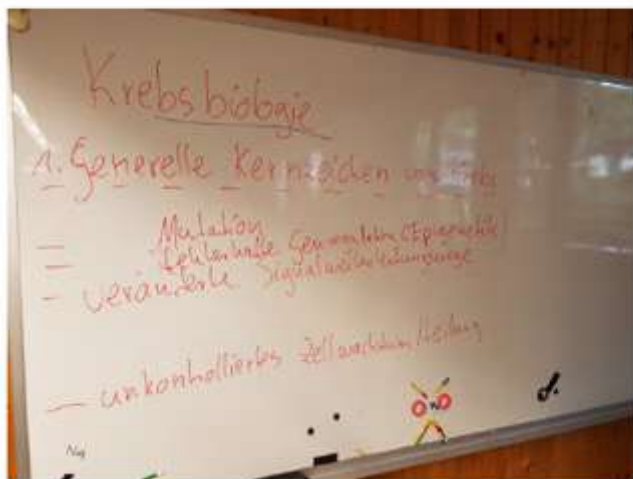 Krebsbiologie
1. Generelle Kennzeichen von Krebs
– Mutation
– Fehlerhafte Genregulation (Epigenetik)
– veränderte Signalweiterleitungswege
– unkontrolliertes Zellwachstum/teilung